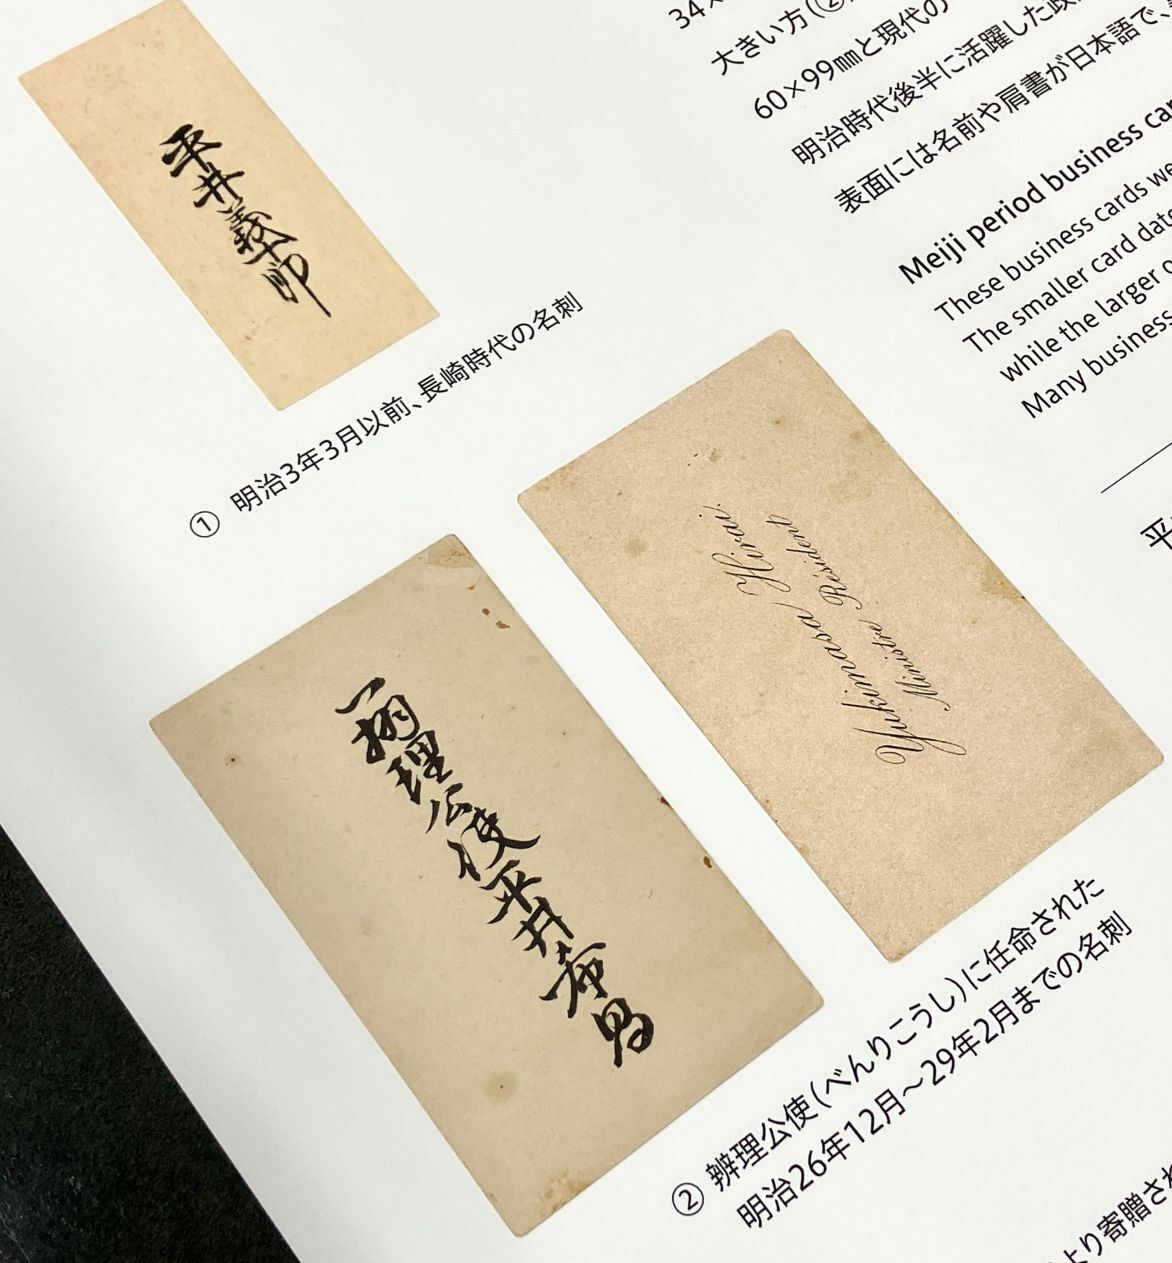 平井義十郎
① 明治3年3月以前、長崎時代の名刺
34×
大きい方(②
60×99㎜と現代の
明治時代後半に活躍した政
表面には名前や肩書が日本語で、
Meiji period business
These business cards
The smaller card
while the larger
Many business
平
辨理公使平井希昌
Yukimasa Hirai.
Ministre Résident
② 辨理公使(べんりこうし)に任命された
明治26年12月～29年2月までの名刺
より寄贈され